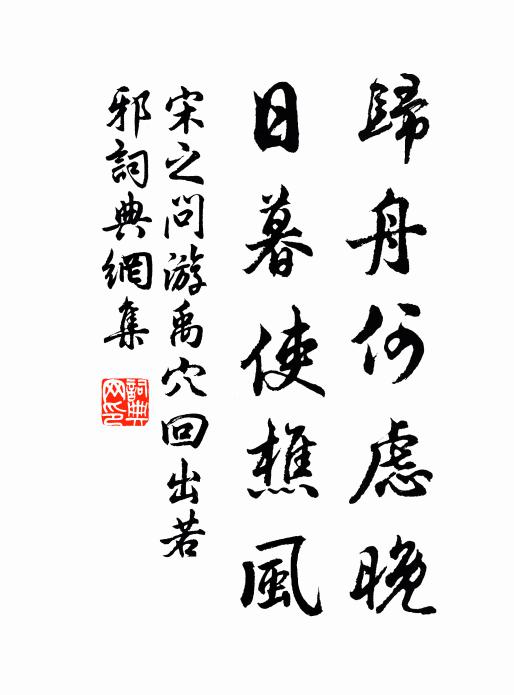 歸舟何慮晚
日暮使樵風
宋之問游禹穴回出若
邪詞典網集
詞典
网印